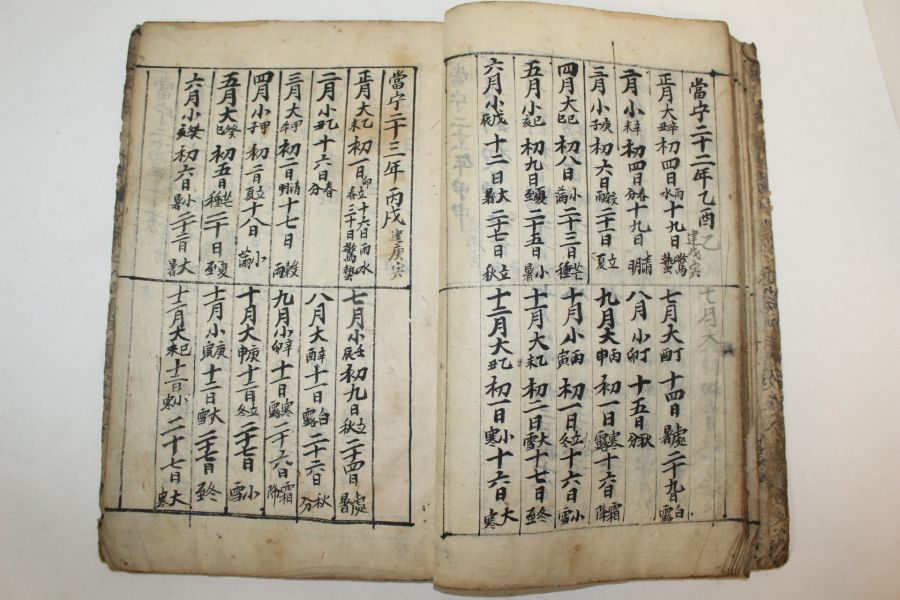 當宁二十二年乙酉建戊寅
正月大辛丑初四日雨水十九日驚蟄
二月小辛未初四日春分十九日清明
三月小庚子初六日穀雨二十一日立夏
四月大己巳初八日小滿二十三日芒種
五月小己亥初九日夏至二十五日小暑
六月小戊辰十二日大暑二十七日立秋
七月大丁酉十四日處暑二十九日白露
八月小丁卯十五日秋分
九月大丙申初一日寒露十六日霜降
十月小丙寅初一日立冬十六日小雪
十一月大乙未初二日大雪十七日冬至
十二月大乙丑初一日小寒十六日大寒
當宁二十三年丙戌建庚寅
正月大乙未初一日卯立春十六日雨水三十日驚蟄
二月小乙丑十六日春分
三月大甲午初二日清明十七日穀雨
四月小甲子初二日立夏十八日小滿
五月大癸巳初五日芒種二十日夏至
六月小癸亥初六日小暑二十二日大暑
七月小壬辰初九日立秋二十四日處暑
八月大辛酉十一日白露二十六日秋分
九月小辛卯十一日寒露二十六日霜降
十月大庚申十二日立冬二十七日小雪
十一月小庚寅十二日大雪二十七日冬至
十二月大己未十二日小寒二十七日大寒